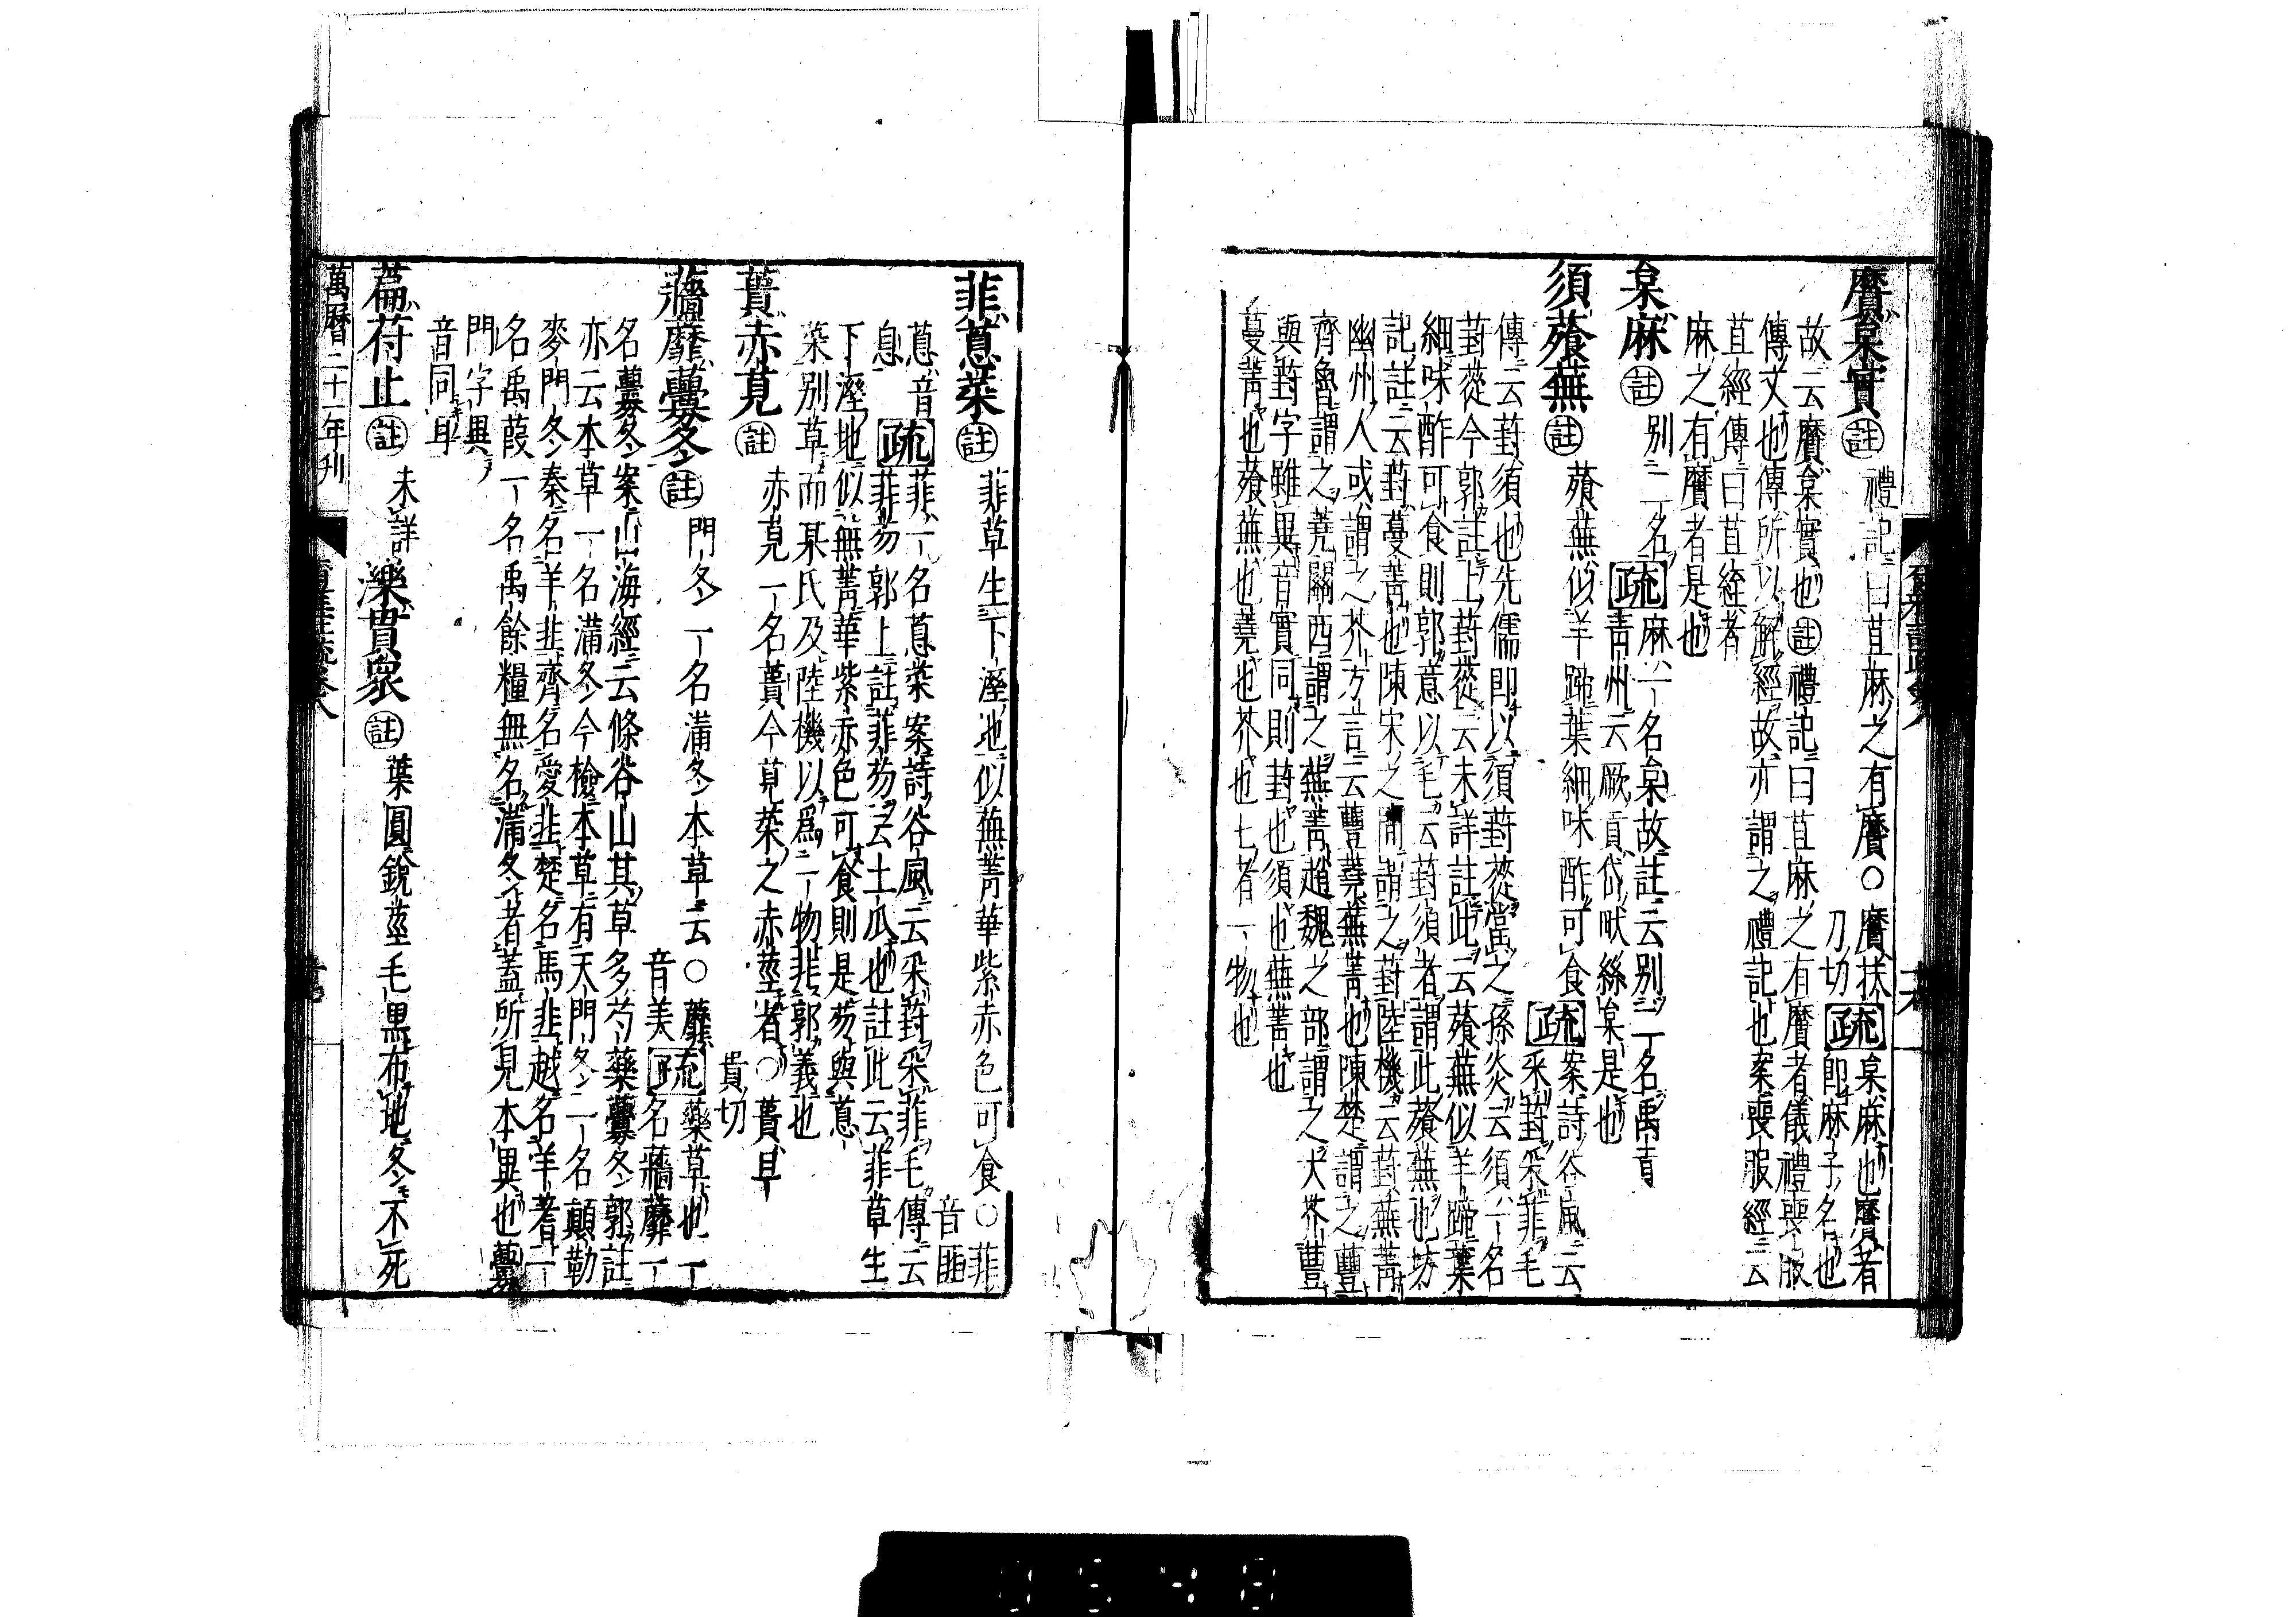 黂枲實註禮記曰苴麻之有黂○黂扶
刀切疏枲麻也黂者
即麻子名也
故云黂枲實也註禮記曰苴麻之有黂者儀禮喪服
傳文也傳所以解經故亦謂之禮記也案喪服經云
苴經傳曰苴絰者
麻之有黂者是也
枲麻註別二名疏麻一名枲故註云別二名禹貢
青州云厥貢岱畎絲枲是也
須薞蕪註薞蕪似羊蹄葉細味酢可食疏案詩谷風云
采葑采菲毛
傳云葑須也先儒即以須葑蓯當之孫炎云須一名
葑蓯今郭註上葑蓯云未詳註此云薞蕪似羊蹄葉
細味酢可食則郭意以毛云葑須者謂此薞蕪也坊
記註云葑蔓菁也陳宋之間謂之葑陸機云葑蕪菁
幽州人或謂之芥方言云蘴蕘蕪菁也陳楚謂之蘴
齊魯謂之蕘關西謂之蕪菁趙魏之部謂之大芥蘴
與葑字雖異音實同則葑也須也蕪菁也
蔓菁也薞蕪也蕘也芥也七者一物也
菲蒠菜註菲草生下溼地似蕪菁華紫赤色可食○菲
音匪
蒠音
息疏菲一名蒠菜案詩谷風云采葑采菲毛傳云
菲芴郭上註菲芴云土瓜也註此云菲草生
下溼地似無菁華紫赤色可食則是芴與蒠
菜別草而某氏及陸機以爲一物非郭義也
蕢赤莧註赤莧一名蕢今莧菜之赤莖者○蕢具
貴切
蘠蘼虋冬註門冬一名滿冬本草云○蘼
音美疏藥草也一
名蘠蘼一
名虋冬案山海經云條谷山其草多芍藥虋冬郭註
亦云本草一名滿冬今檢本草有天門冬一名顛勒
麥門冬秦名羊韭齊名愛韭楚名馬韭越名羊蓍一
名禹葭一名禹餘糧無名滿冬者蓋所見本異也虋
門字異
音同耳
萹苻止註未詳濼貫衆註葉圓銳莖毛黑布地冬不死
萬曆二十一年刋